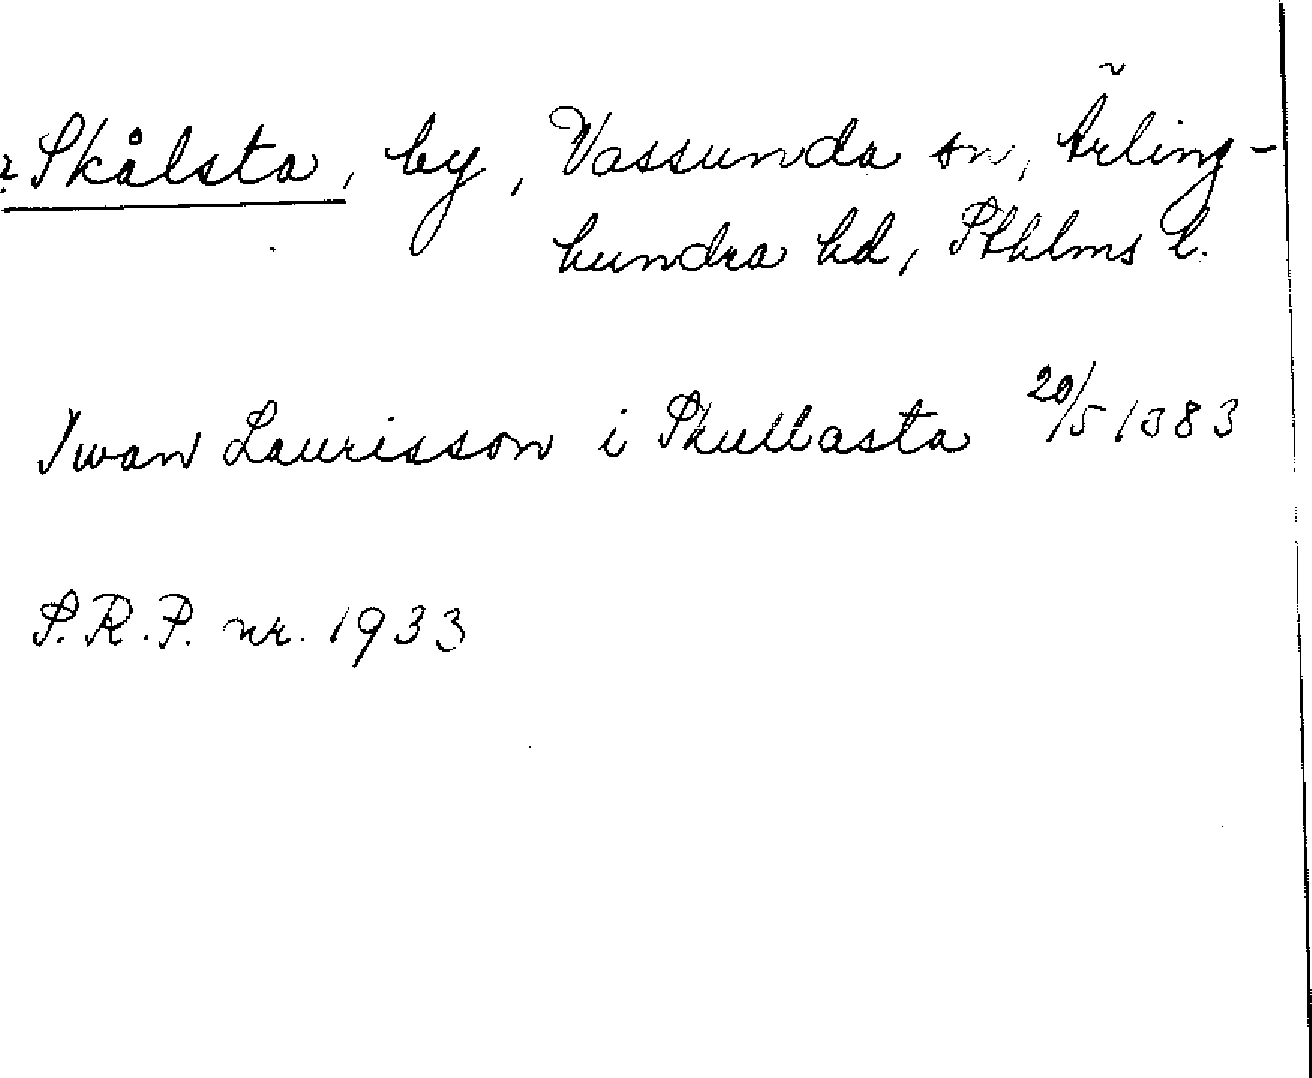 ? Skålsta, by, Vassunda sn, Ärling-
hundra hd, Sthlms l.
Iwan Laurisson i Skullasta 20/5 1383
S.R.P. nr. 1933